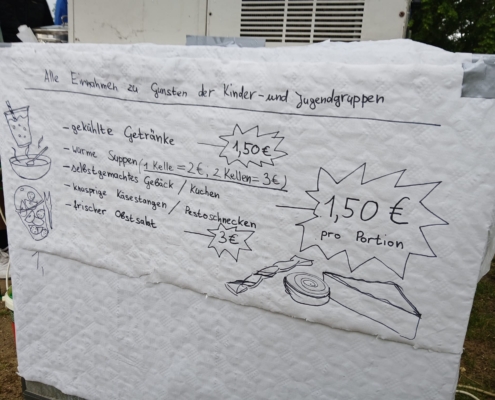 Alle Einnahmen zu Gunsten der Kinder- und Jugendgruppen
- gekühlte Getränke — 1,50€
- warme Suppen (1 Kelle = 2€, 2 Kellen = 3€)
- selbstgemachtes Gebäck / Kuchen
- knusprige Käsestangen / Pestoschnecken — 1,50 €
pro Portion
- frischer Obstsalat — 3€